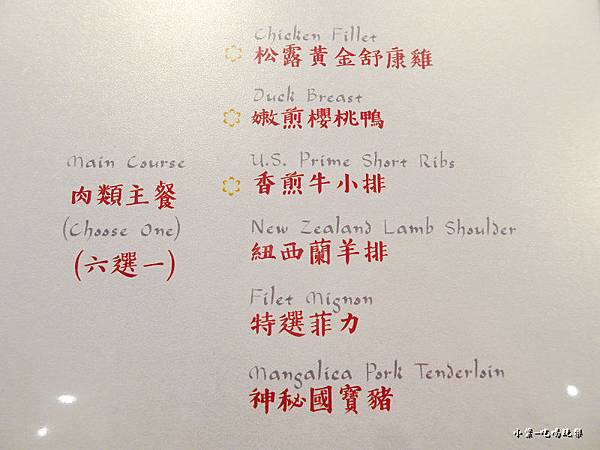 Main Course
肉類主餐
(Choose One)
(六選一)
Chicken Fillet
松露黃金舒康雞
Duck Breast
嫩煎櫻桃鴨
U.S. Prime Short Ribs
香煎牛小排
New Zealand Lamb Shoulder
紐西蘭羊排
Filet Mignon
特選菲力
Mangalica Pork Tenderloin
神秘國寶豬
小紫-吃喝玩樂